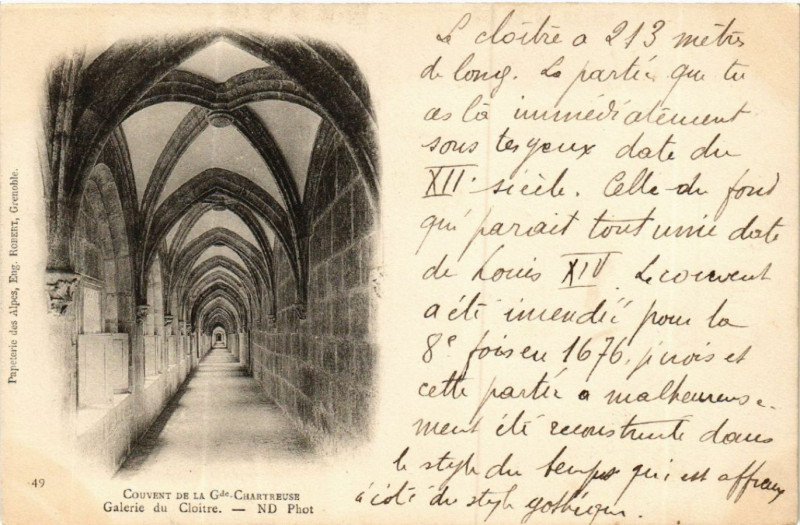 Papeterie des Alpes, Eug. ROBERT, Grenoble.
49
COUVENT DE LA Gde-CHARTREUSE
Galerie du Cloître. — ND Phot
Le cloître a 213 mètres
de long. La partie que tu
as là immédiatement
sous tes yeux date du
XII. siècle. Celle du fond
qui parait tout unie date
de Louis XIV. Le couvent
a été incendié pour la
8e fois en 1676, je crois et
cette partie a malheureuse-
ment été reconstruite dans
le style du temps qui est affreux
à côté du style gothique.